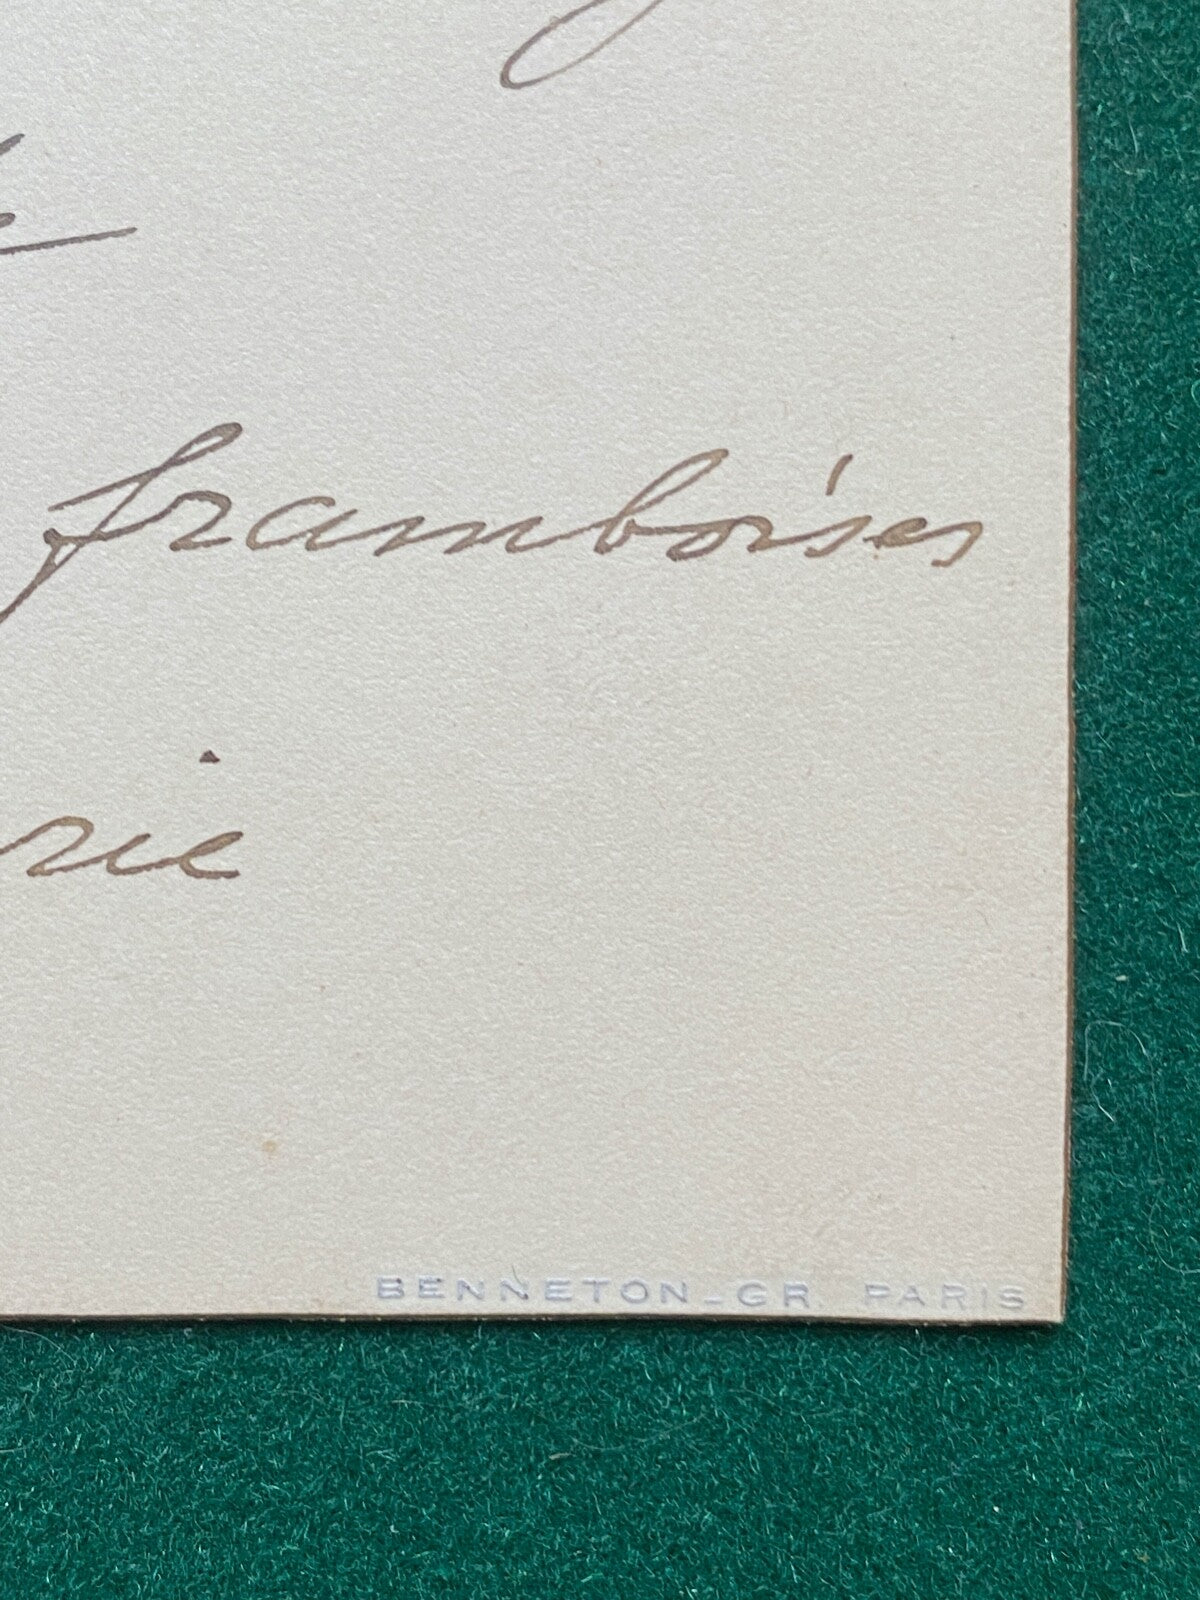 framboises
rie
BENNETON_GR PARIS